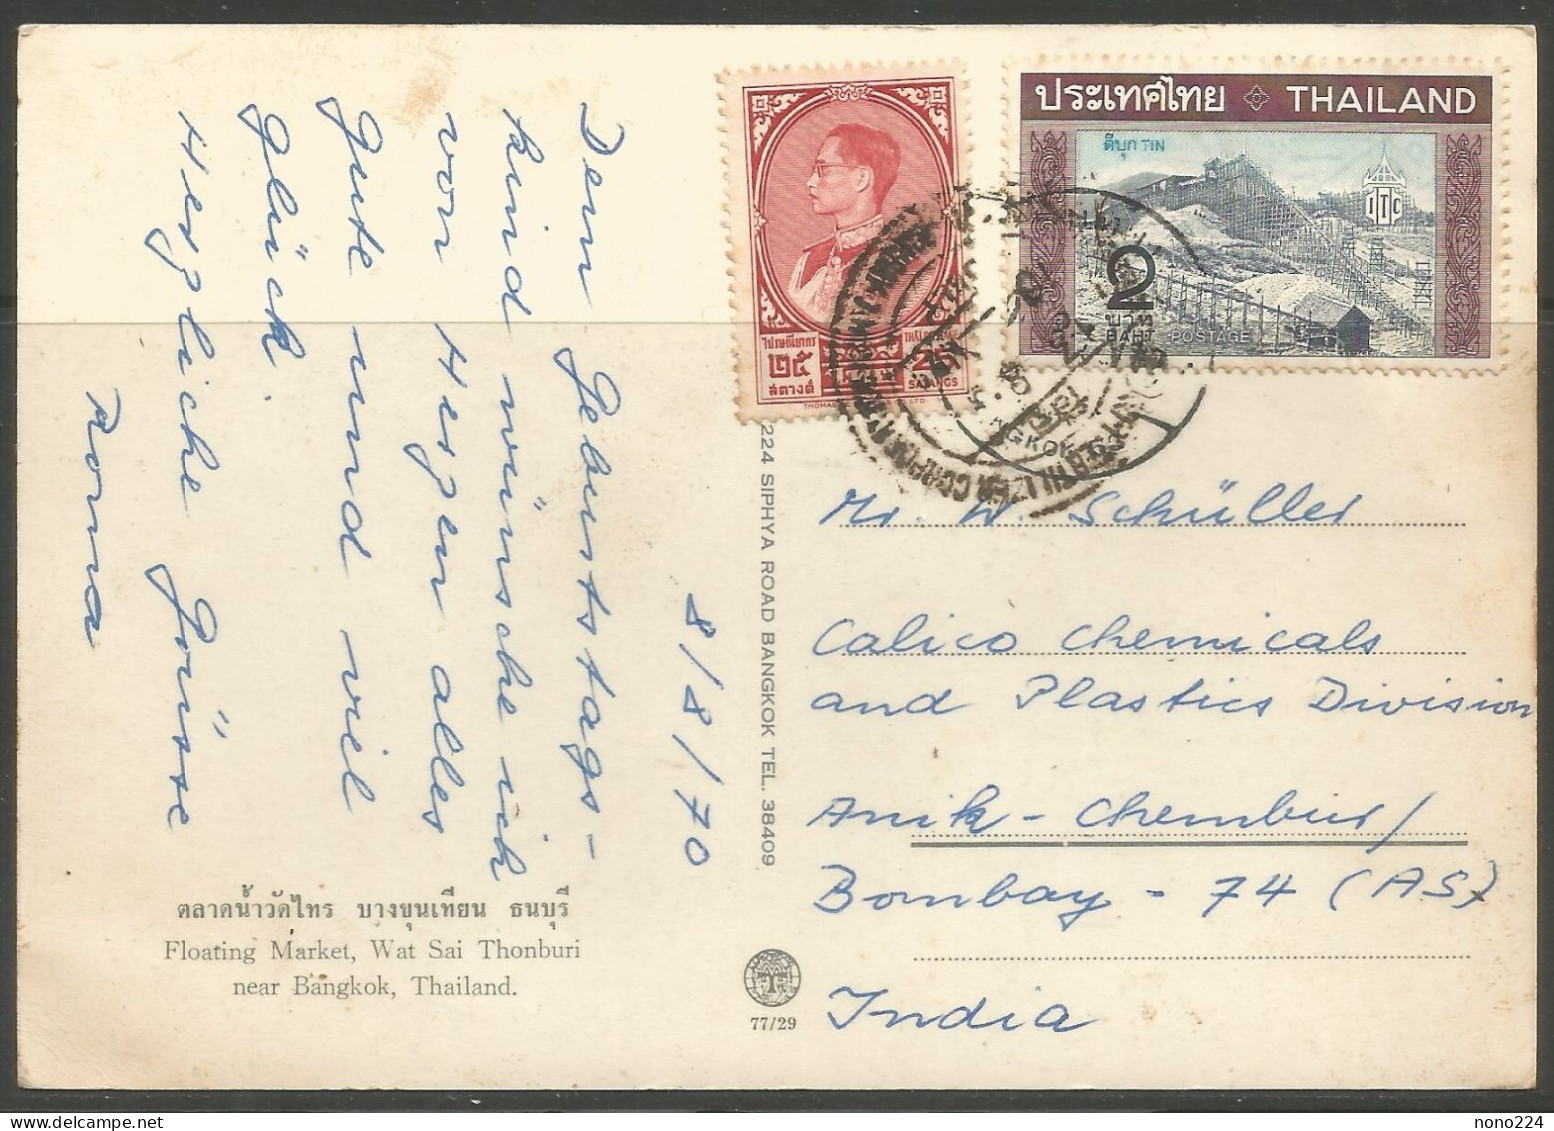 8/8/70
Dem Geburtstags-
kind wünsche ich
von Herzen alles
Gute und viel
Glück.
Herzliche Grüsse
Rona
ตลาดน้ำวัดไทร บางขุนเทียน ธนบุรี
Floating Market, Wat Sai Thonburi
near Bangkok, Thailand.
224 SIPHYA ROAD BANGKOK TEL. 38409
77/29
ไปรษณียากร
๒๕
สตางค์
25
SATANGS
ประเทศไทย THAILAND
ดีบุก TIN
ITC
2
บาท
BAHT
POSTAGE
Mr W. Schüller
Calico Chemicals
and Plastics Division
Anik - Chembur/
Bombay - 74 (AS)
India
nono224